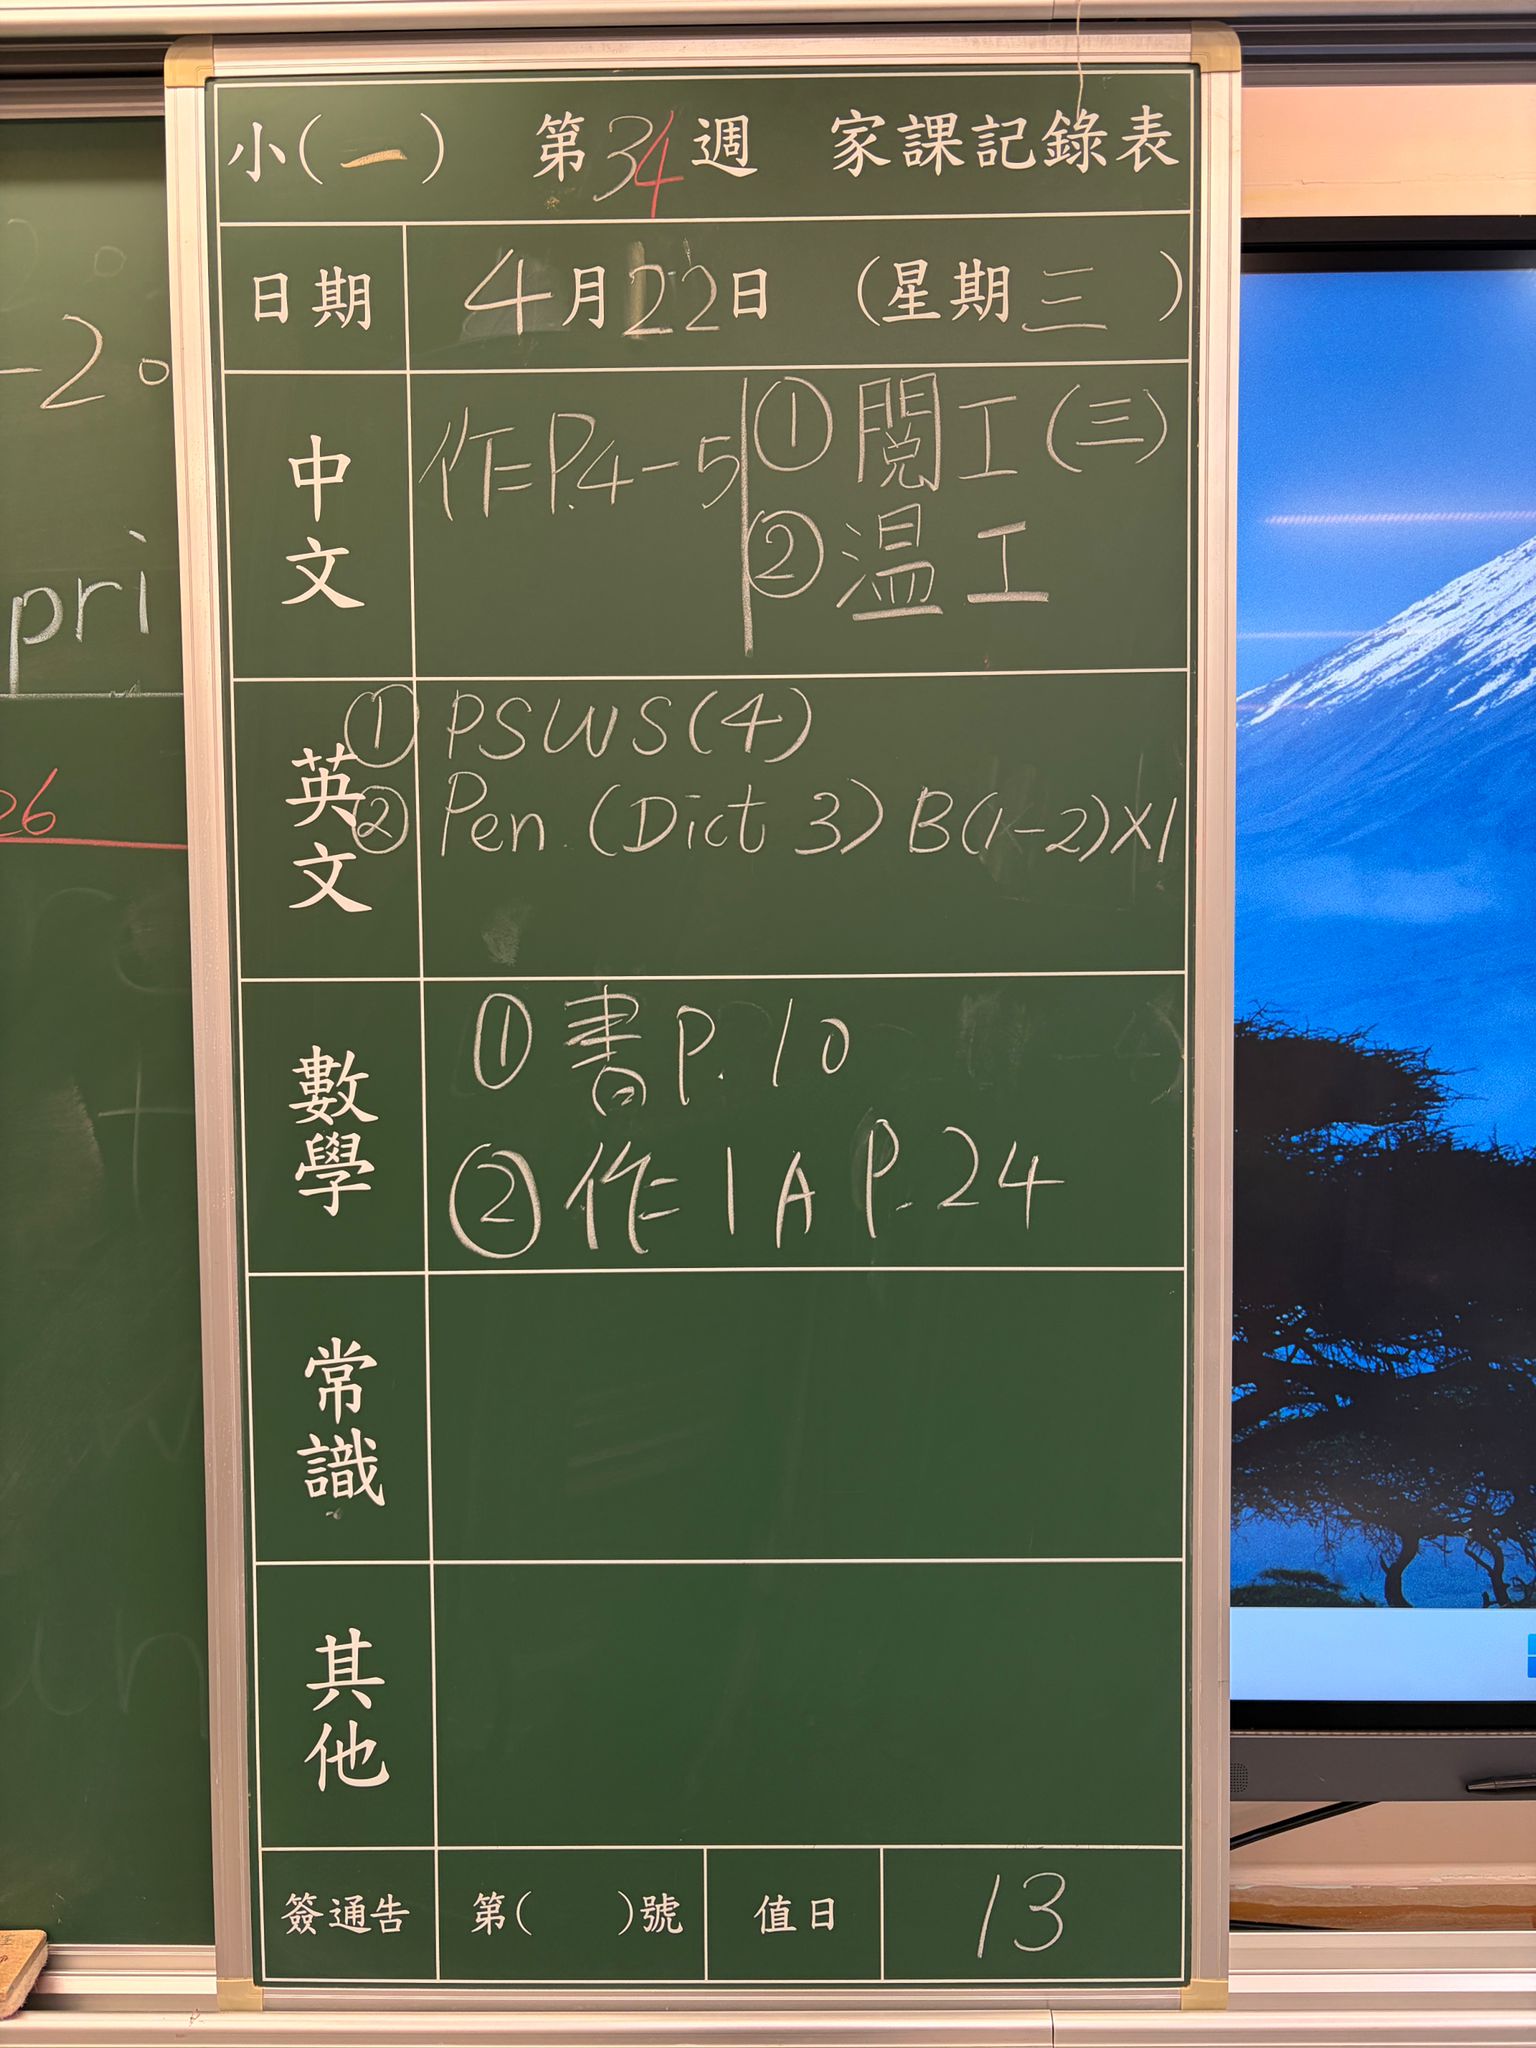 小(一) 第34週 家課記錄表
日期 4月22日 (星期三)
中文
作=P.4-5
①閱工(三)
②温工
英文
① PSWS(4)
② Pen. (Dict 3) B(1-2)×1
數學
①書P.10
②作 1A P.24
常識
其他
簽通告 第( )號 值日 13
-2。
pri
26